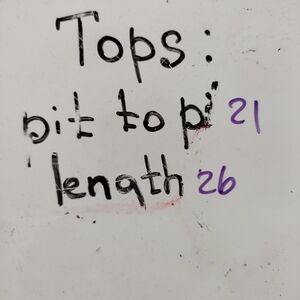 Tops:
pit to pi 21
length 26